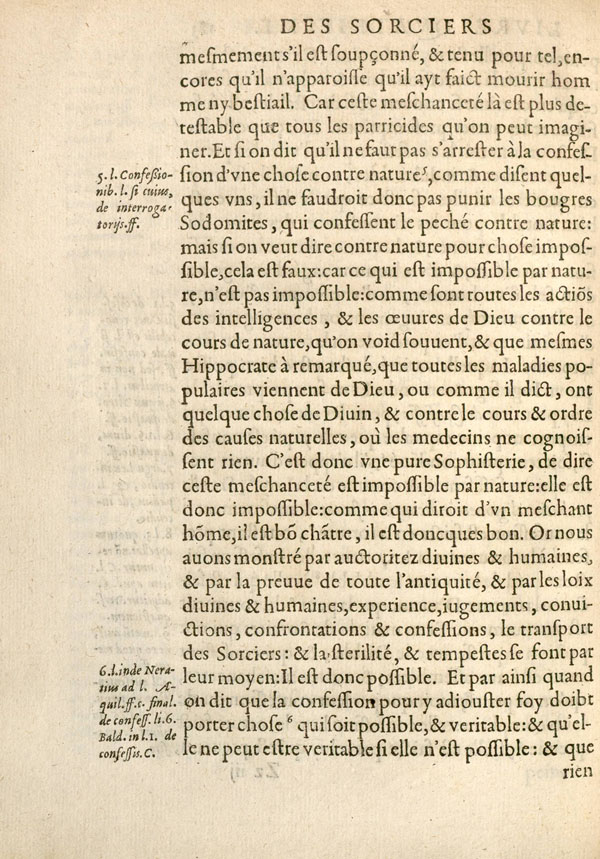 DES SORCIERS
mesmement s'il est soupçonné, & tenu pour tel, en-
cores qu'il n'apparoisse qu'il ayt faict mourir hom
me ny bestiail. Car ceste meschanceté là est plus de-
testable que tous les parricides qu'on peut imagi-
ner. Et si on dit qu'il ne faut pas s'arrester à la confes-
sion d'vne chose contre nature⁵, comme disent quel-
ques vns, il ne faudroit donc pas punir les bougres
Sodomites, qui confessent le peché contre nature:
mais si on veut dire contre nature pour chose impos-
sible, cela est faux: car ce qui est impossible par natu-
re, n'est pas impossible: comme sont toutes les actiōs
des intelligences, & les œuures de Dieu contre le
cours de nature, qu'on void souuent, & que mesmes
Hippocrate à remarqué, que toutes les maladies po-
pulaires viennent de Dieu, ou comme il dict, ont
quelque chose de Diuin, & contre le cours & ordre
des causes naturelles, où les medecins ne cognois-
sent rien. C'est donc vne pure Sophisterie, de dire
ceste meschanceté est impossible par nature: elle est
donc impossible: comme qui diroit d'vn meschant
hōme, il est bō chātre, il est doncques bon. Or nous
auons monstré par auctoritez diuines & humaines,
& par la preuue de toute l'antiquité, & par les loix
diuines & humaines, experience, iugements, conui-
ctions, confrontations & confessions, le transport
des Sorciers: & la sterilité, & tempestes se font par
leur moyen: Il est donc possible. Et par ainsi quand
on dit que la confession pour y adiouster foy doibt
porter chose ⁶ qui soit possible, & veritable: & qu'el-
le ne peut estre veritable si elle n'est possible: & que
rien
5. l. Confessio-
nib. l. si cuius,
de interroga-
torijs. ff.
6. l. inde Nera-
tius ad l. A-
quil. ff. c. final.
de confess. li. 6.
Bald. in l. 1. de
confessis. C.